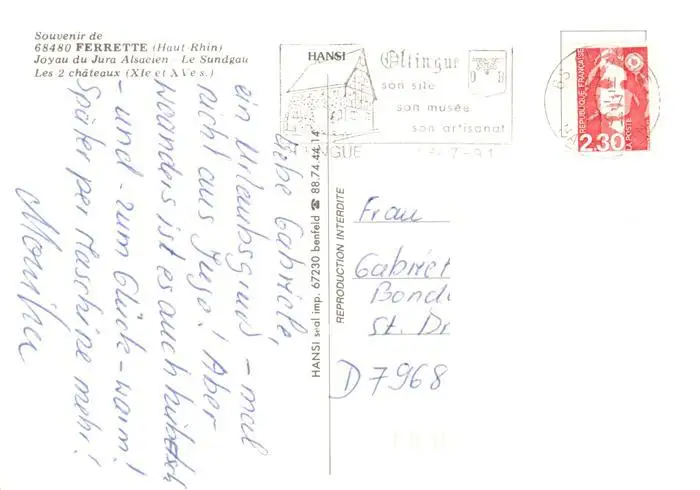 Souvenir de
68480 FERRETTE (Haut-Rhin)
Joyau du Jura Alsacien - Le Sundgau
Les 2 châteaux (XIe et XVe s.)
Liebe Gabriele,
ein Urlaubsgruß - mal
nicht aus Jugo! Aber
woanders ist es auch hübsch
- und - zum Glück - warm!
Später per Maschine mehr!
Monika
HANSI seal imp. 67230 benfeld ☎ 88.74.44.14
REPRODUCTION INTERDITE
HANSI
Oltingue
son site
son musée
son artisanat
7-91
REPUBLIQUE FRANÇAISE
LA POSTE
2,30
Frau
Gabriel
Bond
St. Dr
D 7968